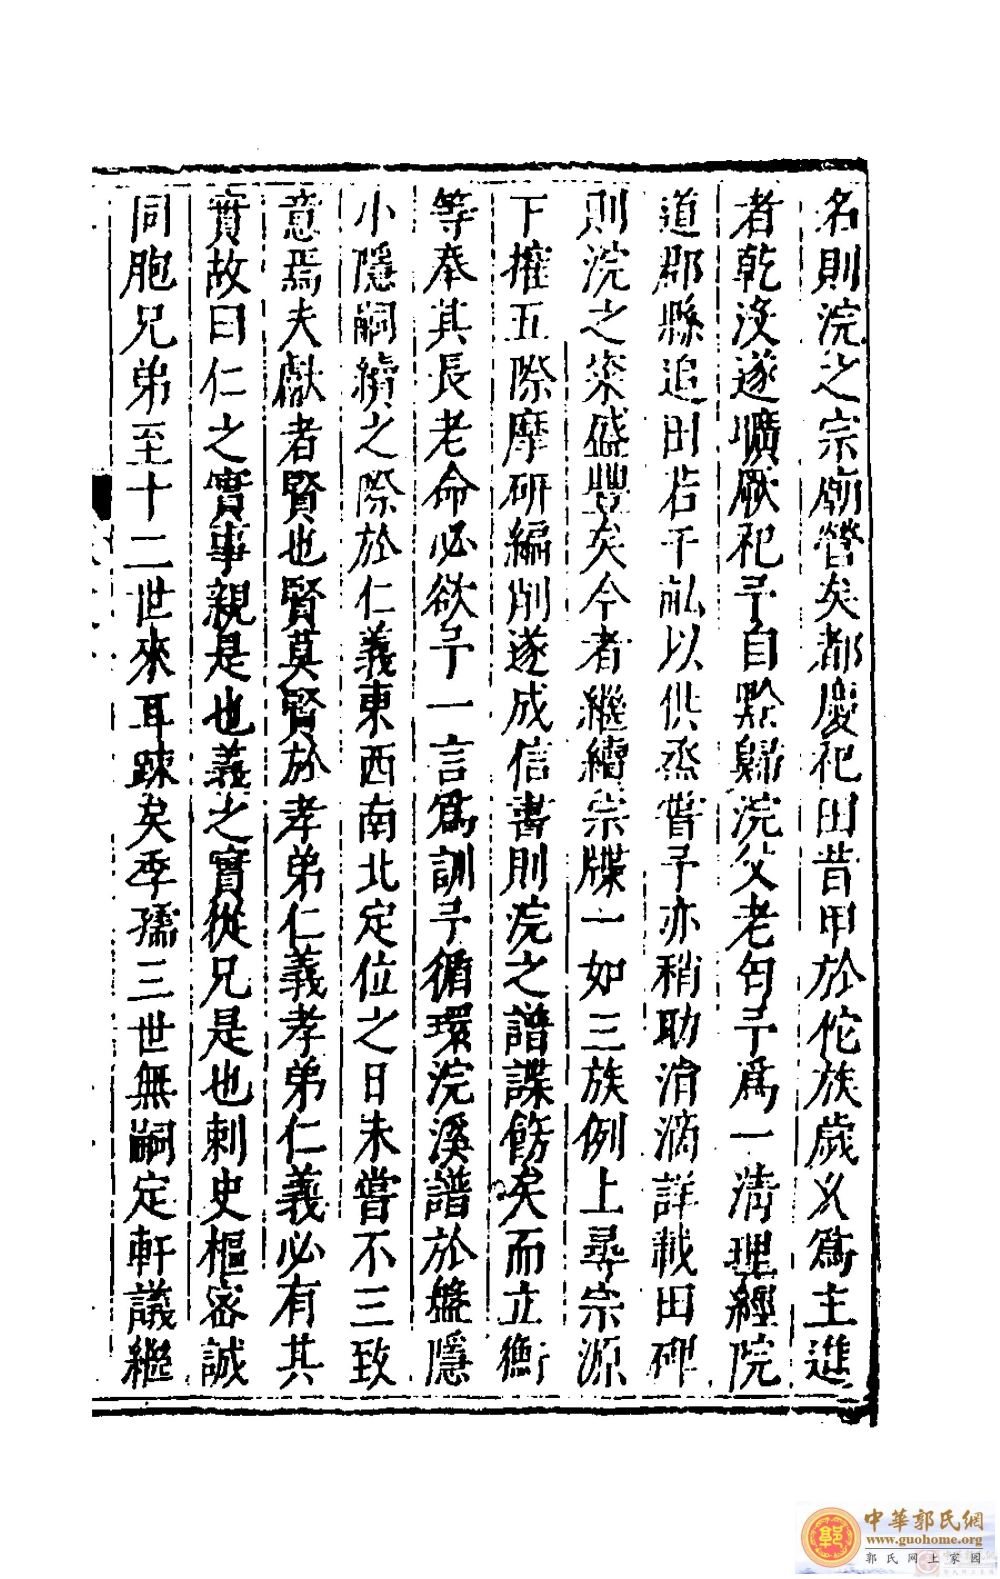 名則浣之宗廟營矣都慶祀田昔甲於佗族歲久為主進
者乾沒遂壙厥祀予自黔歸浣父老匄予為一清理經院
道郡縣追田若干畆以供烝甞予亦稍助涓滴詳載田碑
則浣之粢盛豐矣今者繼續宗牒一如三族例上尋宗源
下搉五際摩研編削遂成信書則浣之譜諜飭矣而立衡
等奉其長老命必欲予一言為訓予循環浣溪譜於盤隱
小隱嗣續之際於仁義東西南北定位之日未嘗不三致
意焉夫獻者賢也賢莫賢於孝弟仁義孝弟仁義必有其
實故曰仁之實事親是也義之實從兄是也刺史樞密誠
同胞兄弟至十二世來耳踈矣季孺三世無嗣定軒議繼
中華郭氏網
www.guohome.org
郭氏网上家园